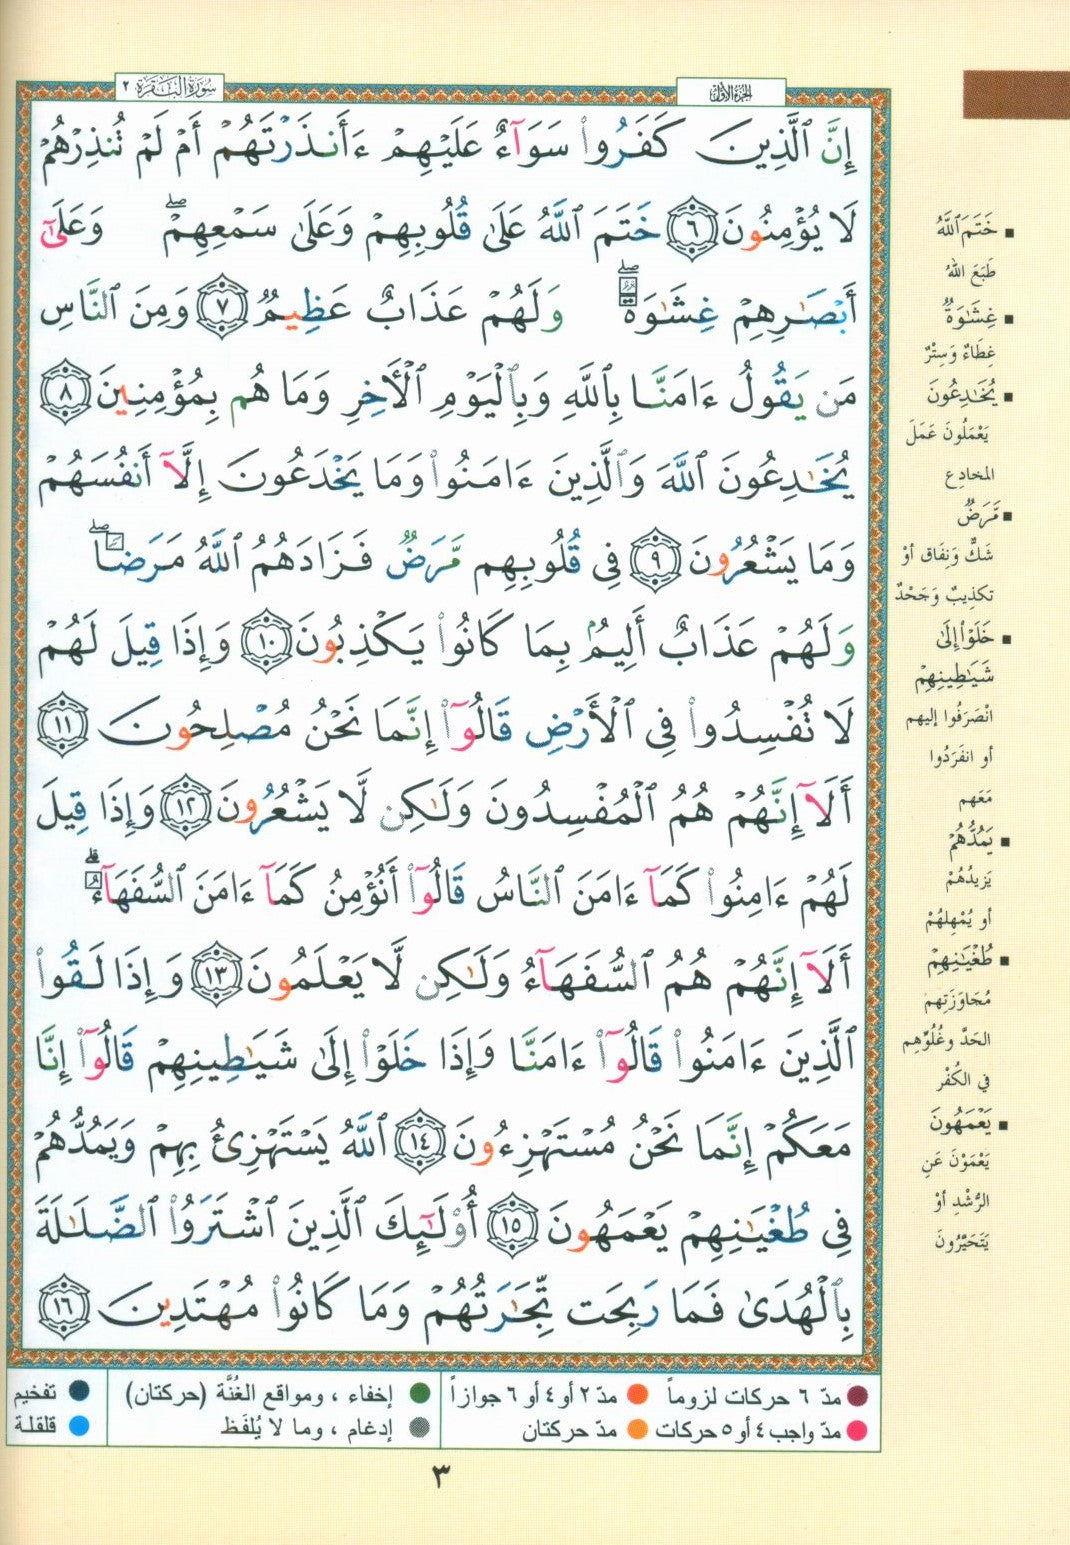 سُورَةُ البَقَرَة ٢
الجزء الأول
إِنَّ ٱلَّذِينَ كَفَرُوا۟ سَوَآءٌ عَلَيْهِمْ ءَأَنذَرْتَهُمْ أَمْ لَمْ تُنذِرْهُمْ
لَا يُؤْمِنُونَ ٦ خَتَمَ ٱللَّهُ عَلَىٰ قُلُوبِهِمْ وَعَلَىٰ سَمْعِهِمْ ۖ وَعَلَىٰٓ
أَبْصَٰرِهِمْ غِشَٰوَةٌ ۖ وَلَهُمْ عَذَابٌ عَظِيمٌ ٧ وَمِنَ ٱلنَّاسِ
مَن يَقُولُ ءَامَنَّا بِٱللَّهِ وَبِٱلْيَوْمِ ٱلْأَخِرِ وَمَا هُم بِمُؤْمِنِينَ ٨
يُخَٰدِعُونَ ٱللَّهَ وَٱلَّذِينَ ءَامَنُوا۟ وَمَا يَخْدَعُونَ إِلَّآ أَنفُسَهُمْ
وَمَا يَشْعُرُونَ ٩ فِى قُلُوبِهِم مَّرَضٌ فَزَادَهُمُ ٱللَّهُ مَرَضًا ۖ
وَلَهُمْ عَذَابٌ أَلِيمٌۢ بِمَا كَانُوا۟ يَكْذِبُونَ ١٠ وَإِذَا قِيلَ لَهُمْ
لَا تُفْسِدُوا۟ فِى ٱلْأَرْضِ قَالُوٓا۟ إِنَّمَا نَحْنُ مُصْلِحُونَ ١١
أَلَآ إِنَّهُمْ هُمُ ٱلْمُفْسِدُونَ وَلَٰكِن لَّا يَشْعُرُونَ ١٢ وَإِذَا قِيلَ
لَهُمْ ءَامِنُوا۟ كَمَآ ءَامَنَ ٱلنَّاسُ قَالُوٓا۟ أَنُؤْمِنُ كَمَآ ءَامَنَ ٱلسُّفَهَآءُ ۗ
أَلَآ إِنَّهُمْ هُمُ ٱلسُّفَهَآءُ وَلَٰكِن لَّا يَعْلَمُونَ ١٣ وَإِذَا لَقُوا۟
ٱلَّذِينَ ءَامَنُوا۟ قَالُوٓا۟ ءَامَنَّا وَإِذَا خَلَوْا۟ إِلَىٰ شَيَٰطِينِهِمْ قَالُوٓا۟ إِنَّا
مَعَكُمْ إِنَّمَا نَحْنُ مُسْتَهْزِءُونَ ١٤ ٱللَّهُ يَسْتَهْزِئُ بِهِمْ وَيَمُدُّهُمْ
فِى طُغْيَٰنِهِمْ يَعْمَهُونَ ١٥ أُو۟لَٰٓئِكَ ٱلَّذِينَ ٱشْتَرَوُا۟ ٱلضَّلَٰلَةَ
بِٱلْهُدَىٰ فَمَا رَبِحَت تِّجَٰرَتُهُمْ وَمَا كَانُوا۟ مُهْتَدِينَ ١٦
■ خَتَمَ ٱللَّهُ
طَبَعَ اللهُ
■ غِشَٰوَةٌ
غِطَاءٌ وَسِتْرٌ
■ يُخَٰدِعُونَ
يَعْمَلُونَ عَمَلَ
المخادِع
■ مَّرَضٌ
شَكٌّ وَنِفَاق أوْ
تكذيبٌ وَجَحْدٌ
■ خَلَوْا۟ إِلَىٰ
شَيَٰطِينِهِمْ
انْصَرَفُوا إليهم
أو انفَرَدُوا
مَعَهم
■ يَمُدُّهُمْ
يَزيدُهُمْ
أو يُمْهِلهُمْ
■ طُغْيَٰنِهِمْ
مُجَاوَزَتِهِمْ
الحَدَّ وغُلُوِّهِم
في الكُفْر
■ يَعْمَهُونَ
يَعْمَوْنَ عَنِ
الرُّشْدِ أوْ
يَتَحَيَّرُونَ
مدّ ٦ حركات لزوماً مدّ ٢ أو ٤ أو ٦ جوازاً إخفاء ، ومواقع الغُنَّة (حركتان) تفخيم
مدّ واجب ٤ أو ٥ حركات مدّ حركتان إدغام ، وما لا يُلفَظ قلقلة
٣